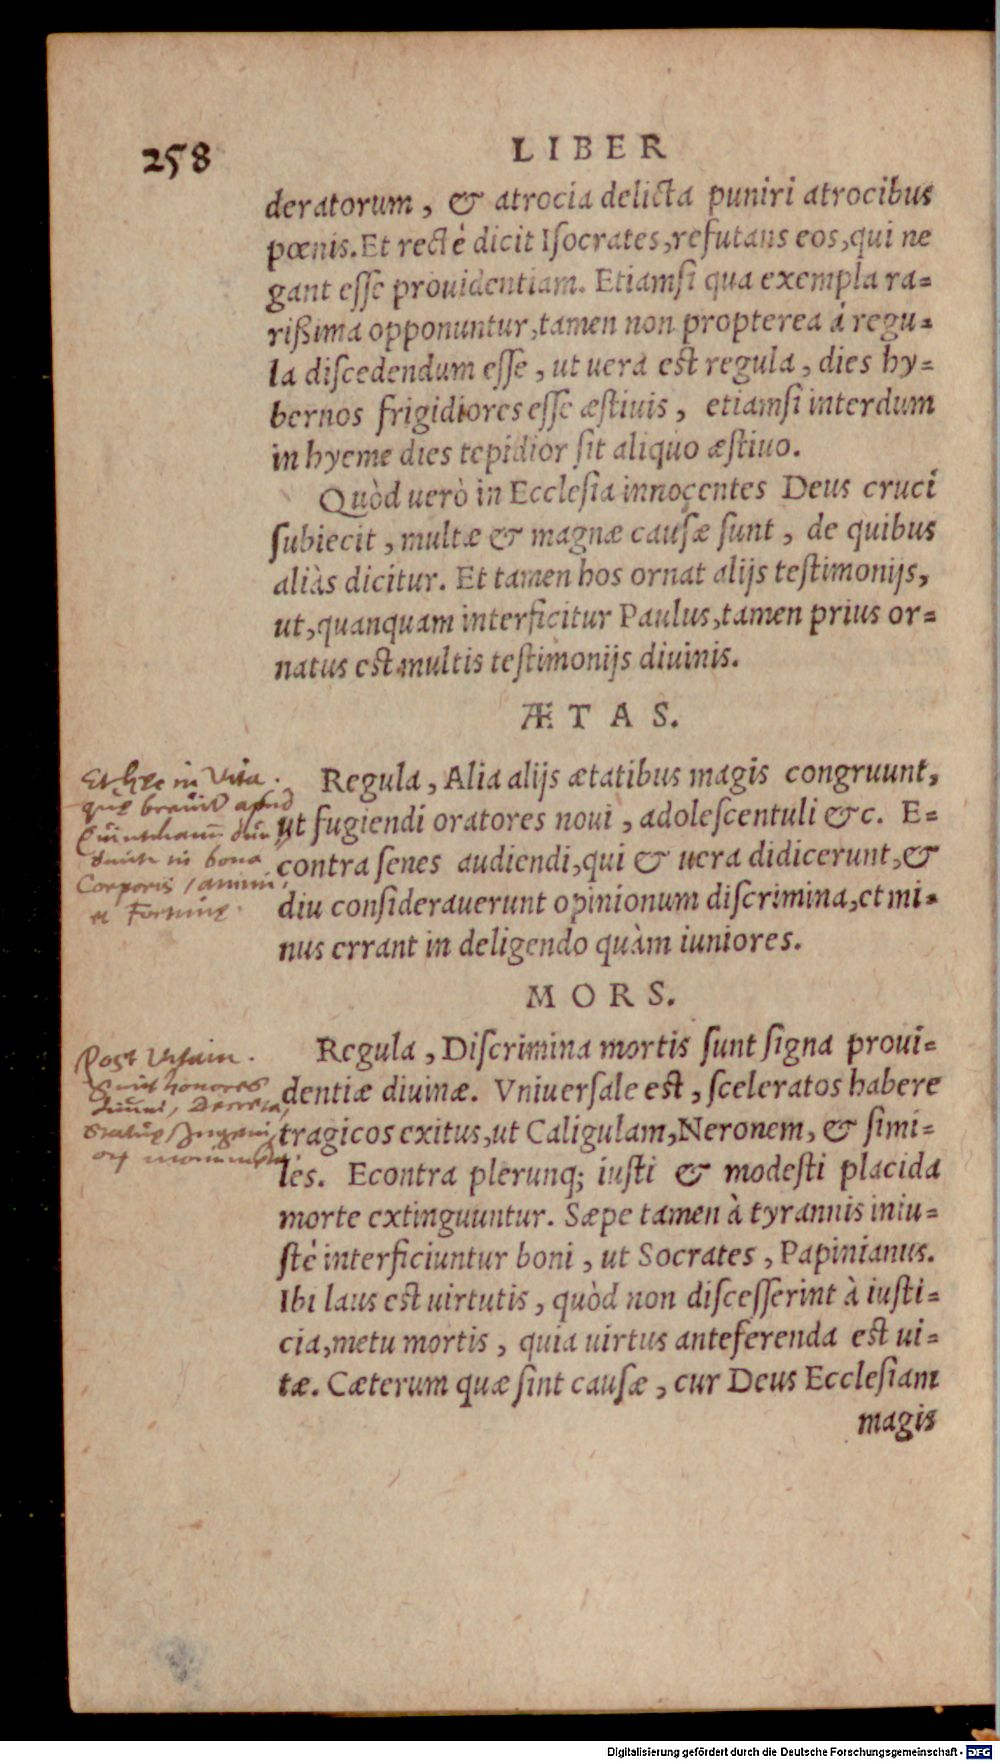 258
LIBER
deratorum, & atrocia delicta puniri atrocibus
pœnis. Et rectè dicit Iſocrates, refutans eos, qui ne
gant eſſe prouidentiam. Etiamſi qua exempla ra=
rißima opponuntur, tamen non propterea à regu=
la diſcedendum eſſe, ut uera est regula, dies hy=
bernos frigidiores eſſe æſtiuis, etiamſi interdum
in hyeme dies tepidior ſit aliquo æſtiuo.
Quòd uerò in Eccleſia innocentes Deus cruci
ſubiecit, multæ & magnæ cauſæ ſunt, de quibus
aliàs dicitur. Et tamen hos ornat alijs teſtimonijs,
ut, quanquam interficitur Paulus, tamen prius or=
natus est multis teſtimonijs diuinis.
ÆTAS.
Et hęc in Vita.
quę breuit apud
in bona
Corporis / animi,
et Fortunę.
Regula, Alia alijs ætatibus magis congruunt,
ut fugiendi oratores noui, adoleſcentuli &c. E=
contra ſenes audiendi, qui & uera didicerunt, &
diu conſiderauerunt opinionum diſcrimina, et mi=
nus errant in deligendo quàm iuniores.
MORS.
Post Vitam.
Sunt honores
diuini, Decreta,
Statuę / Ingenij
Regula, Diſcrimina mortis ſunt ſigna proui=
dentiæ diuinæ. Vniuerſale est, ſceleratos habere
tragicos exitus, ut Caligulam, Neronem, & ſimi=
les. Econtra plerunq; iuſti & modeſti placida
morte extinguuntur. Sæpe tamen à tyrannis iniu=
ſtè interficiuntur boni, ut Socrates, Papinianus.
Ibi laus est uirtutis, quòd non diſceſſerint à iuſti=
cia, metu mortis, quia uirtus anteferenda est ui=
tæ. Cæterum quæ ſint cauſæ, cur Deus Eccleſiam
magis
Digitalisierung gefördert durch die Deutsche Forschungsgemeinschaft - DFG